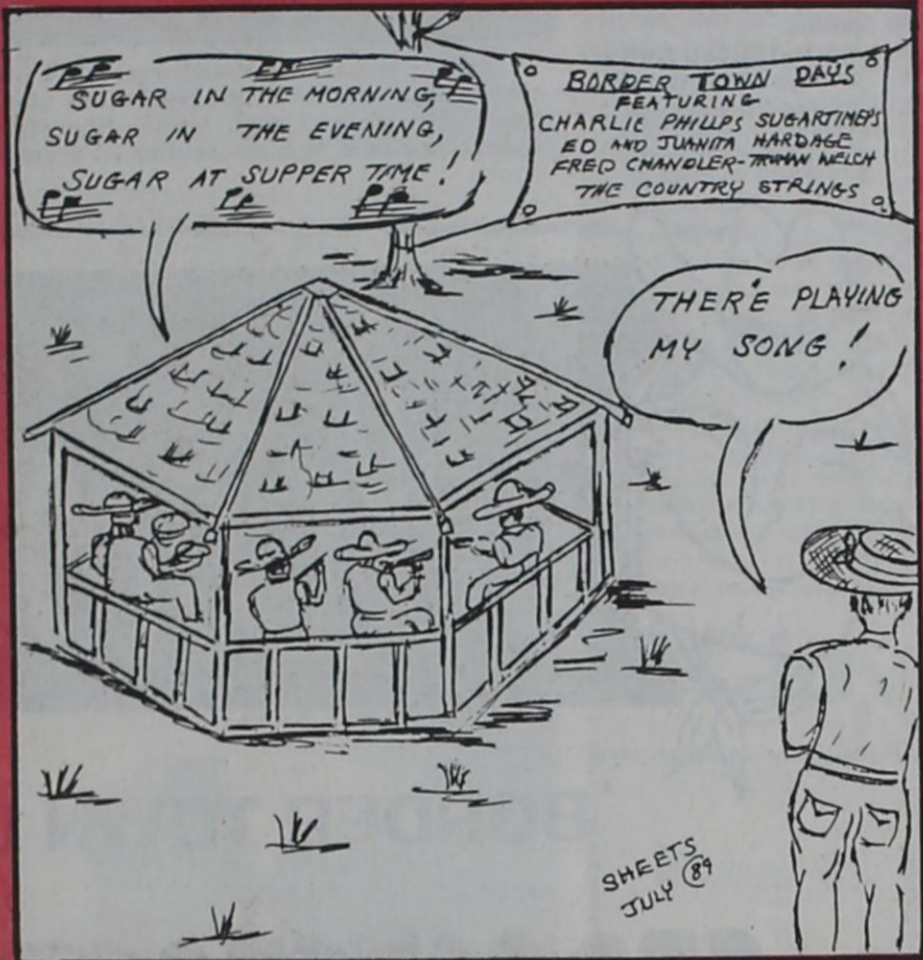 SUGAR IN THE MORNING,
SUGAR IN THE EVENING,
SUGAR AT SUPPER TIME!
BORDER TOWN DAYS
FEATURING
CHARLIE PHILLPS SUGARTIMER'S
ED AND JUANITA HARDAGE
FRED CHANDLER-TRUMAN WELCH
THE COUNTRY STRINGS
THER'E PLAYING
MY SONG!
SHEETS
JULY 89